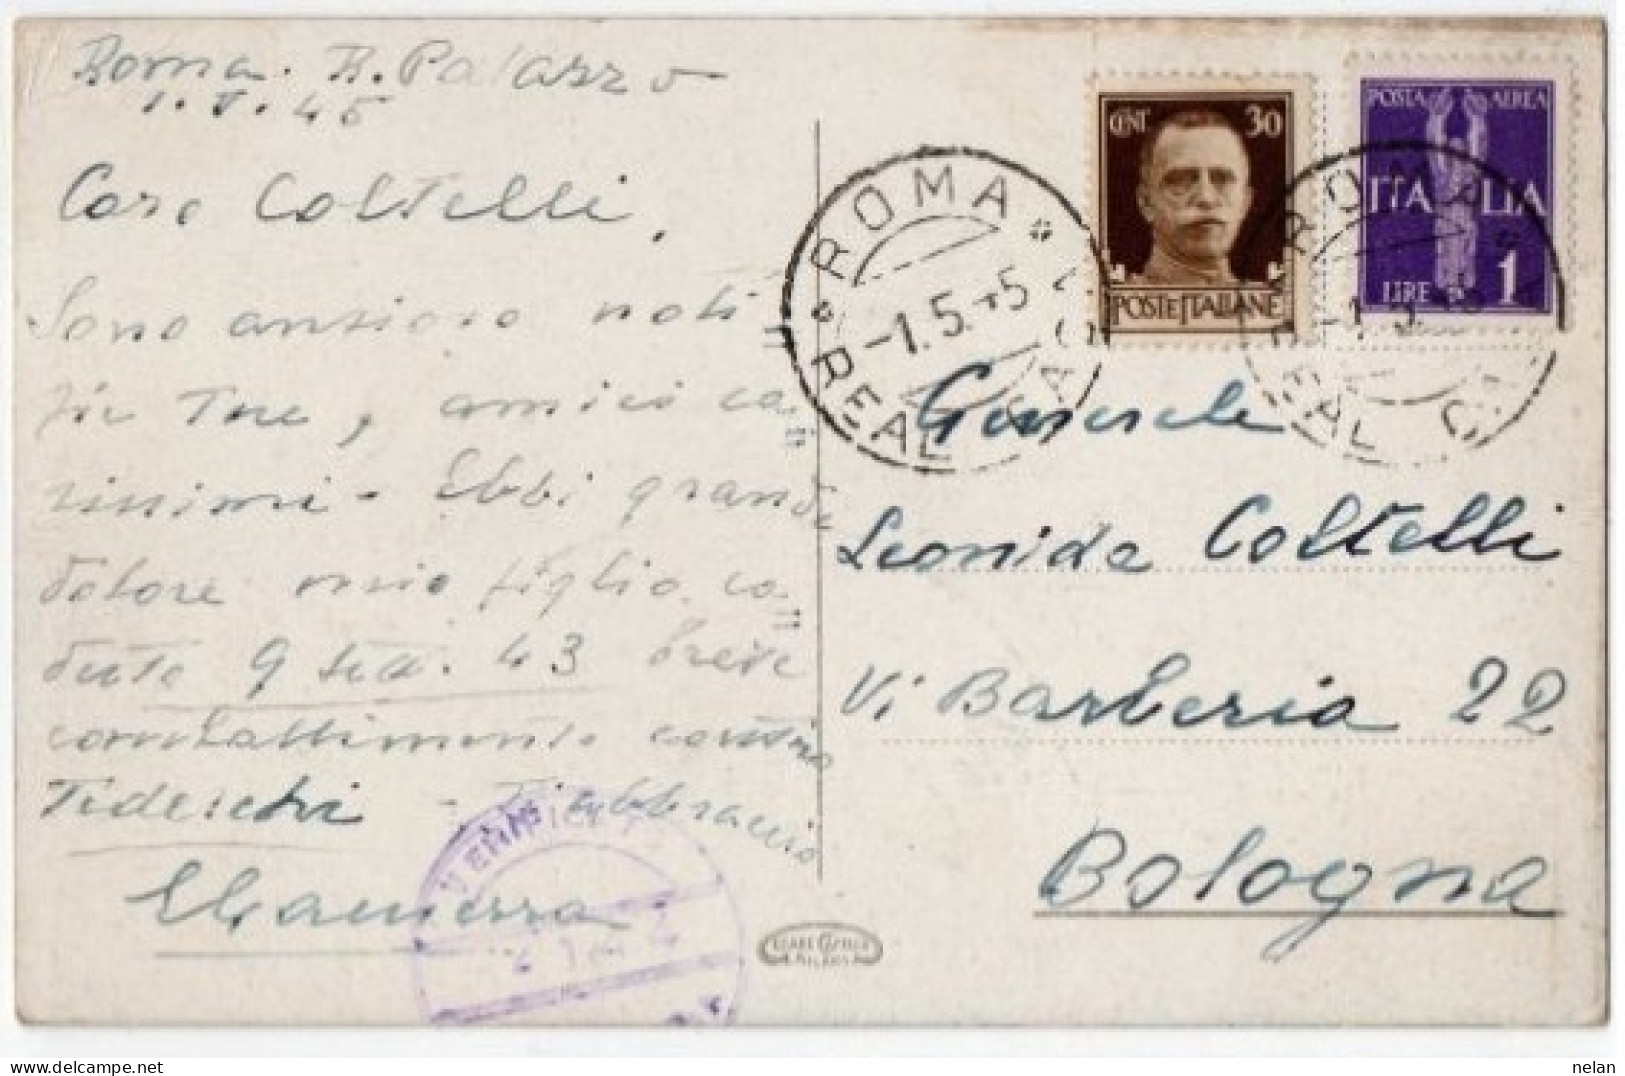 Roma. R. Palazzo
1.V.45
Caro Coltelli,
Sono ansioso noti
zie Tue, amici ca
rissimi - Ebbi grande
dolore mio figlio ca
duto 9 sett. 43 breve
combattimento contro
Tedeschi - Ti abbraccio
POSTE ITALIANE
CENT 30
POSTA AEREA
ITALIA
LIRE 1
ROMA
-1.5.45
REAL
ROMA
REAL
Generale
Leonida Coltelli
Vi Barberia 22
Bologna
CESARE CAPELLO
MILANO
nelan